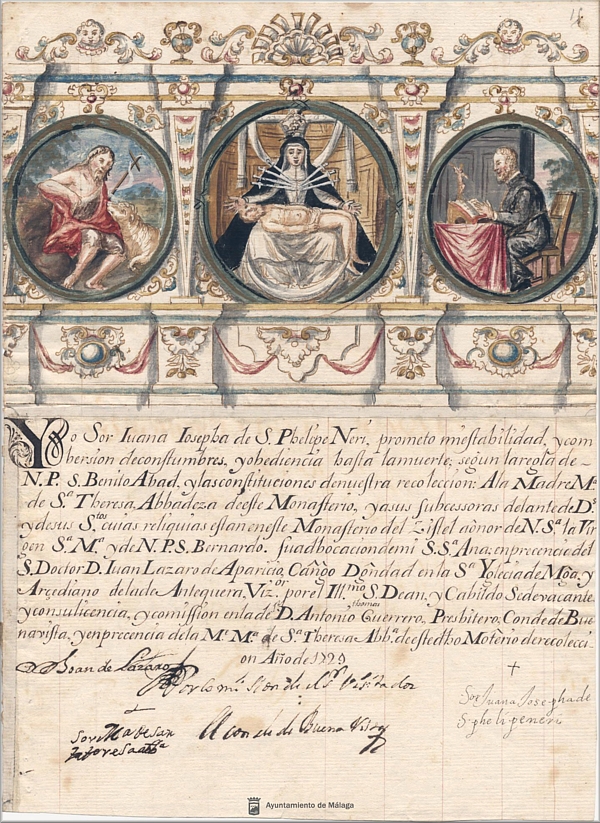 Yo Sor Iuana Iosepha de S. Phelipe Neri. prometo miestabilidad, ycom
bersion deconstumbres, yobediencia hasta lamuerte; segun laregla de
N.P. S. Benito Abad, ylasconstituciones denuestra recoleccion: Ala Madre Mᵃ
de Sᵗᵃ Theresa Abbadeza deeste Monasterio, yasus subcessoras delantede D.ˢ
ydesus S.ᵗᵒˢ cuias reliquias estan eneste Monasterio del Zistel aônor de N.Sᵃ la Vir
gen Sᵗᵃ Mᵃ. y de N.P.S. Bernardo. suadbocaciondemi S.Sᵃ Ana; enprecencia del
S. Doctor D. Iuan Lazaro de Aparicio, Canôgo Dôndad en la Sᵗᵃ Yglecia de Mgᵃ, y
Arçediano delade Antequera, Viz.ᵒʳ por el Ill.ᵐᵒ S. Dean, y Cabildo Sedevacante,
yconsulicencia, ycomission enlade D. Antonio thomas Guerrero, Presbitero, Conde de Bue
navista, y enprecencia dela Mᵉ Mᵃ de Sᵗᵃ Theresa Abb.ᵃ deeste dho Moterio derecolecci
on Año de 1729
Por Comision del Sʳ Visitador
El conde de Buena Vista
Sor Juana Josepha de
S. phelipe neri
14
Ayuntamiento de Málaga